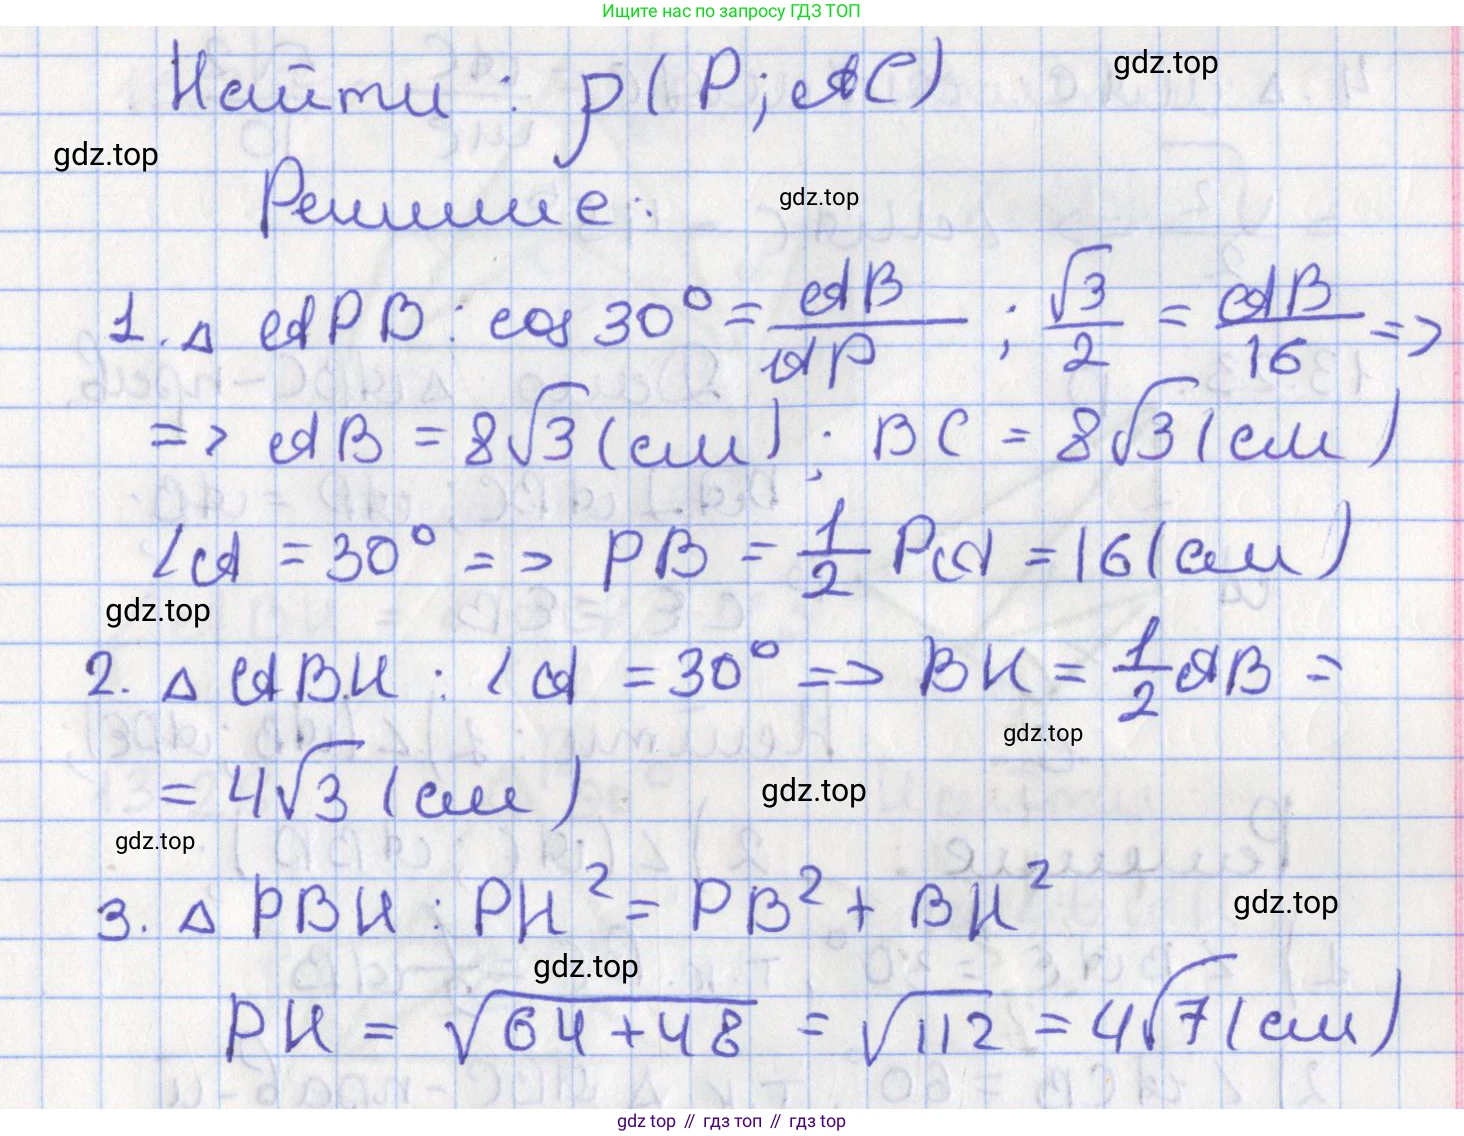 Ищите нас по запросу ГДЗ ТОП
Найти : ρ(P; AC)
gdz.top
gdz.top
Решение:
gdz.top
1. △ APB : cos 30° = AB/AP ; √3/2 = AB/16 =>
=> AB = 8√3 (см) ; BC = 8√3 (см)
∠A = 30° => PB = 1/2 PA = 16 (см)
gdz.top
2. △ ABH : ∠A = 30° => BH = 1/2 AB =
gdz.top
= 4√3 (см)
gdz.top
gdz.top
3. △ PBH : PH² = PB² + BH²
gdz.top
gdz.top
PH = √64+48 = √112 = 4√7 (см)
gdz.top // гдз топ // гдз top